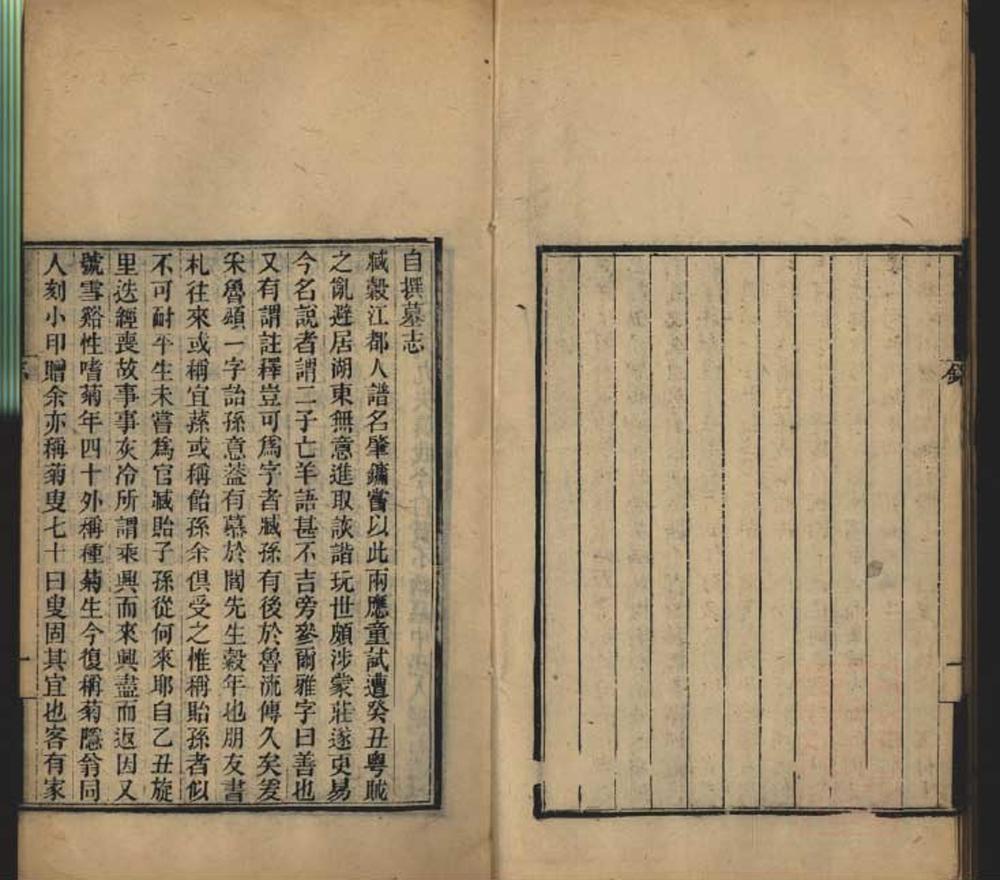 自撰墓志
臧穀江都人譜名肇鏞嘗以此兩應童試遭癸丑粵賊
之亂避居湖東無意進取詼諧玩世頗涉蒙莊遂更易
今名說者謂二子亡羊語甚不吉旁參爾雅字曰善也
又有謂註釋豈可爲字者臧孫有後於魯流傳久矣爰
采魯頌一字詒孫意蓋有慕於閻先生穀年也朋友書
札往來或稱宜蓀或稱飴孫余俱受之惟稱貽孫者似
不可耐平生未嘗爲官臧貽子孫從何來耶自乙丑旋
里迭經喪故事事灰冷所謂乘興而來興盡而返因又
號雪谿性嗜菊年四十外稱種菊生今復稱菊隱翁同
人刻小印贈余亦稱菊叟七十曰叟固其宜也客有家